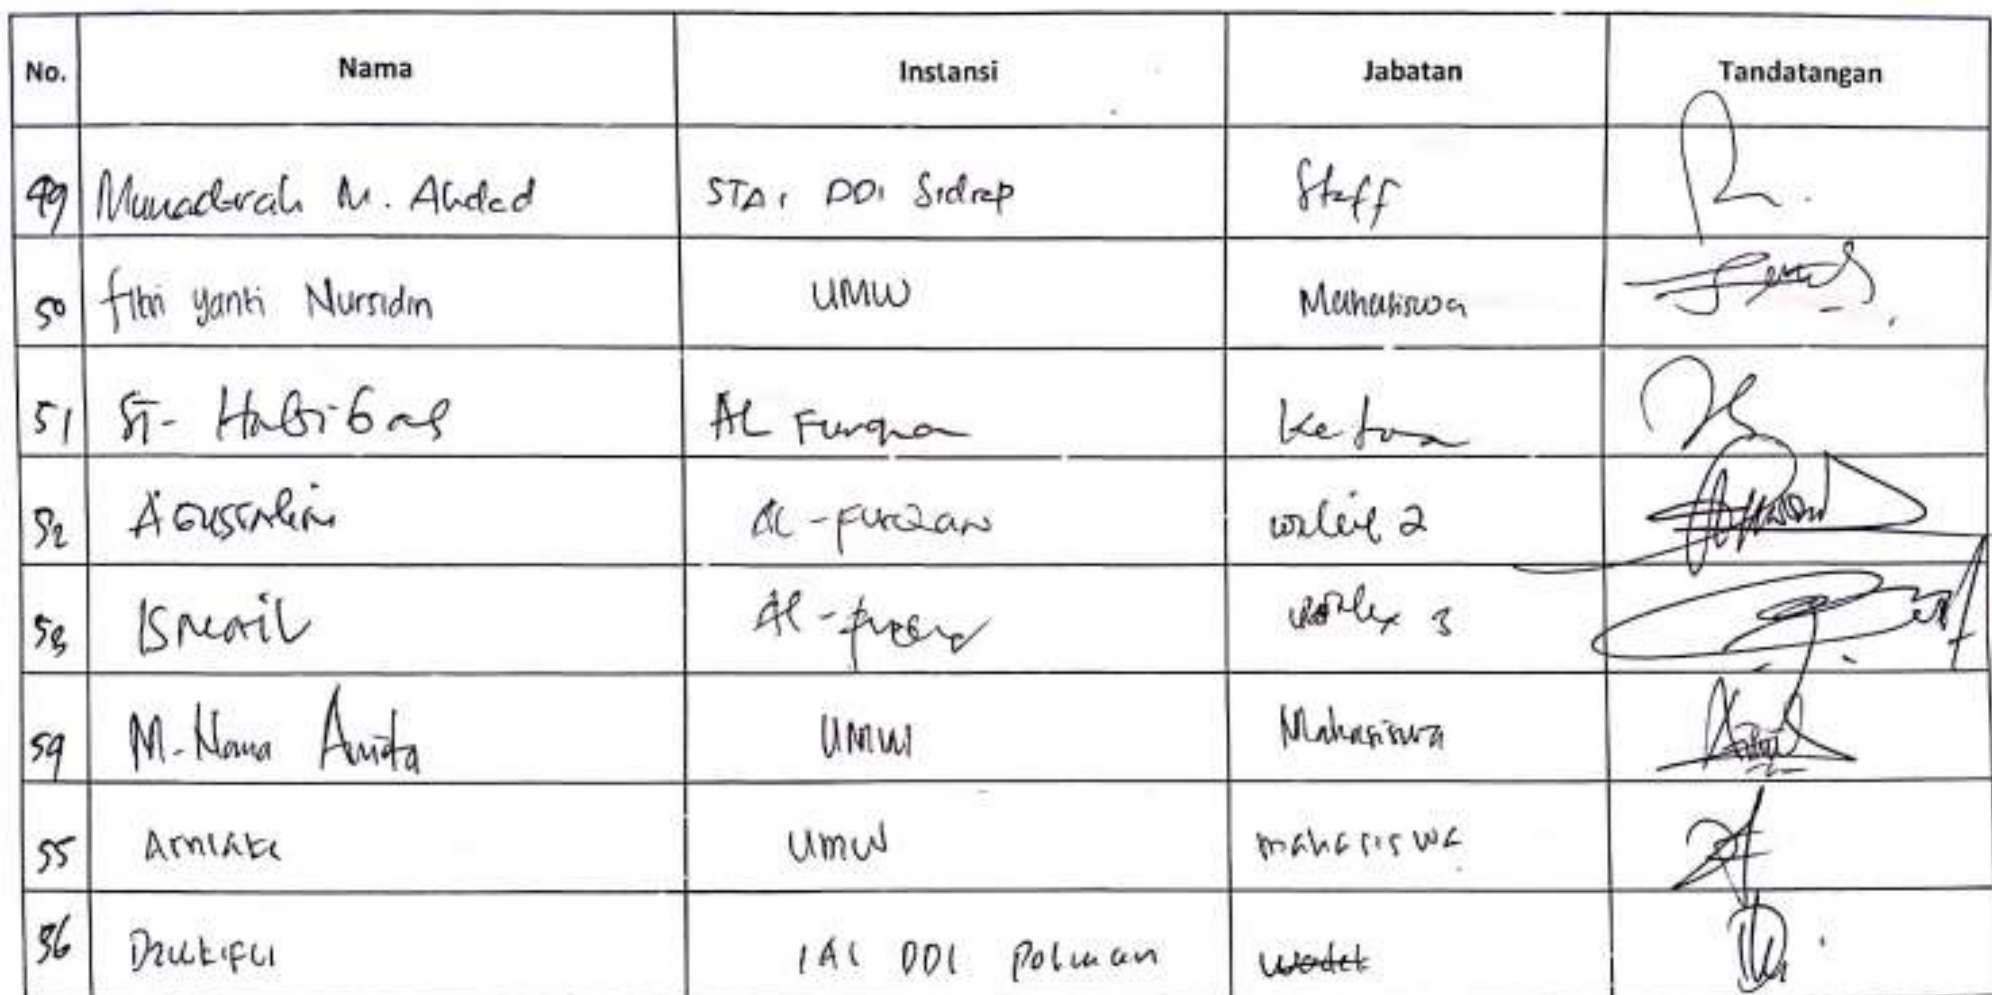 No. Nama Instansi Jabatan Tandatangan
49 Munadirah M. Ahdad STAI DDI Sidrap Staff
50 fitri yanti Nursidin UMW Mahasiswa
51 ST- Habibah AL Furqan Ketua
52 AGUSSALIM AL-FURQAN 2
53 ISMAIL Al-furqan 3
54 M. UMW Mahasiswa
55 UMW mahasiswa
56 Dzulkifli IAI DDI Polman